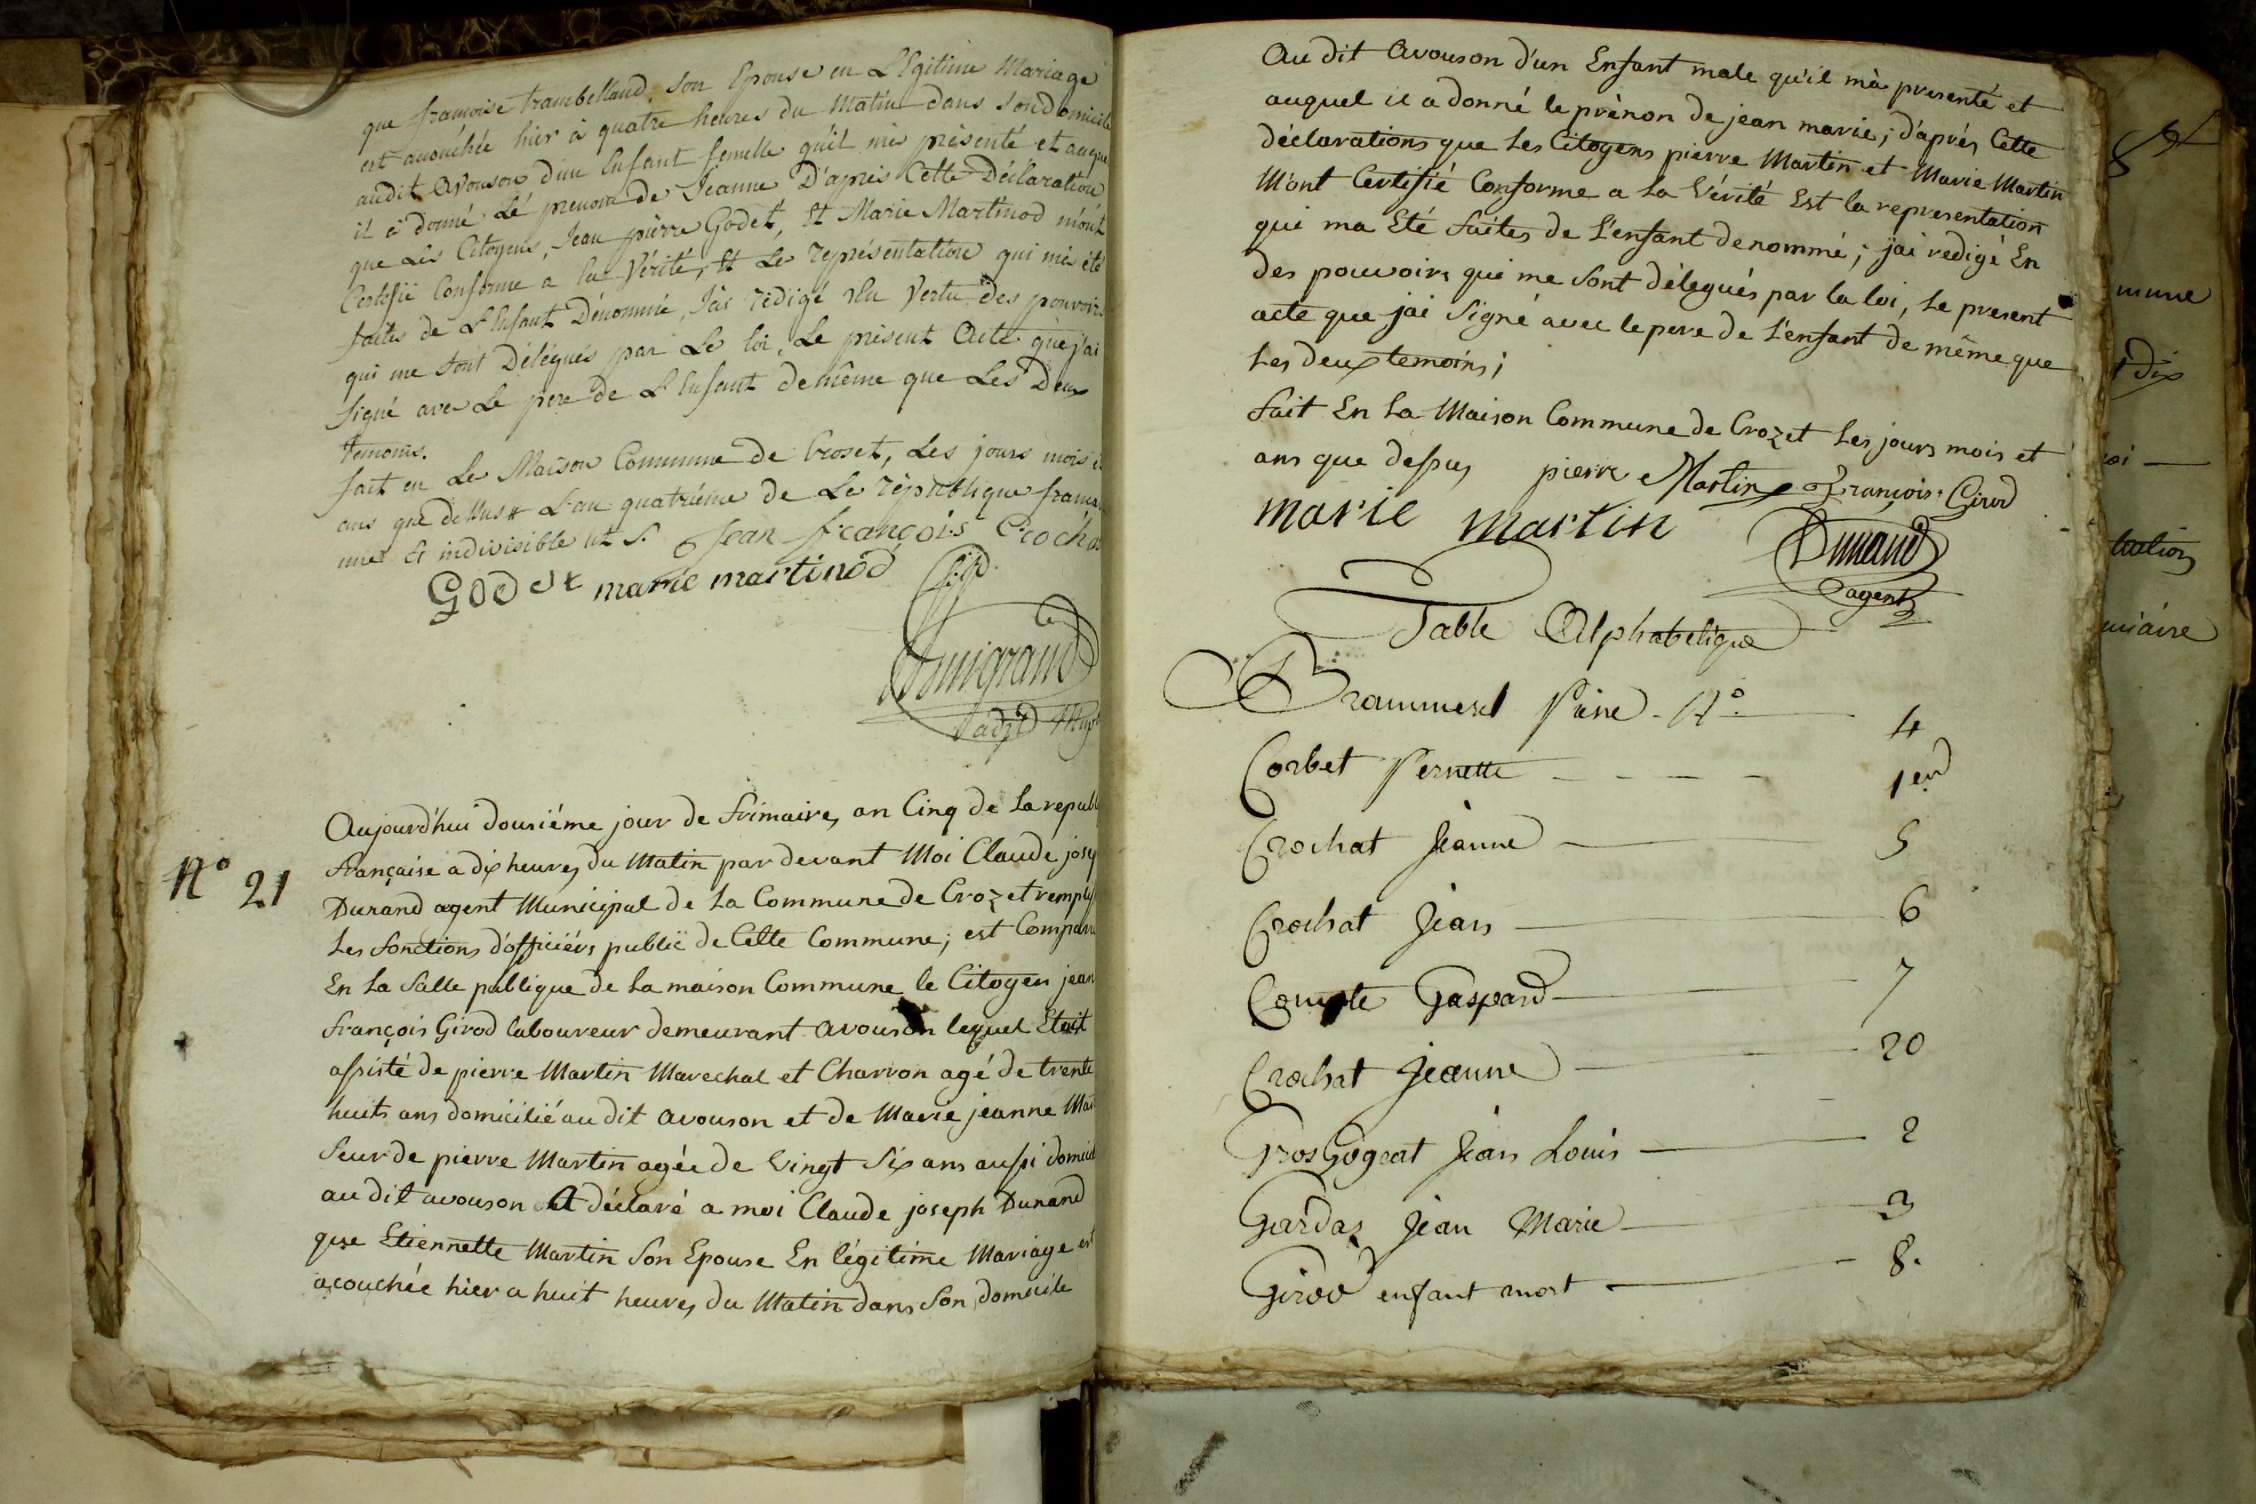 que françoise trambelland, son Epouse en LEgitime Mariage
est auouchée hier à quatre heures du Matin dans son Domicile
audit Avouson d'un Enfant femelle qu'il m'a présenté et auque
il à donné Lé prenom de Jeanne D'après Cette Déclaration
que Les Citoyens, Jean pierre Godet, Et Marie Martinod m'ont
Certifié Conforme a la Vérité, Et Le représentation qui m'a été
faites de L'Enfant Dénommé, J'ai rédigé En Vertu des pouvoirs
qui me sont Délégués par Le loi, Le présent Acte que j'ai
signé avec Le pere de L'Enfant de même que Les Deux
temoins.
fait en Le Maison Commune de Croset, Les jours mois e
ans que dessus L'an quatrième de Le république frança
une et indivisible
Jean françois Crocha
Godet marie martinod
N° 21
Aujourd'hui dousiéme jour de frimaire, an Cinq de la republ
française a dix heures du Matin par devant Moi Claude josep
Durand agent Municipal de la Commune de Crozet remply
les fonctions d'officiérs publië de Cette Commune; est Comparu
En la Salle publique de la maison Commune le Citoyen jean
françois Girod laboureur demeurant avouson lequel Etoit
assisté de pierre Martin Marechal et Charron agé de trente
huits ans domicilié au dit avouson et de Marie jeanne Mar
Seur de pierre Martin agée de vingt Six ans aussi domicil
au dit avouson A déclaré a moi Claude joseph Durand
que Etiennette Martin Son Epouse En légitime Mariage est
acouchée hier a huit heures du Matin dans Son domicile
Au dit Avouson d'un Enfant male qu'il m'a presenté et
auquel il a donné le prènon de jean marie; d'après Cette
déclarations que les Citoyens pierre Martin et Marie Martin
M'ont Certifié Conforme a la Vérité Est la representation
qui ma Eté faites de L'enfant denommé; j'ai redigé En
des pouvoirs qui me sont délegués par la loi, le present
acte que jai Signé avec le pere de L'enfant de même que
les deux temoins;
fait En la Maison Commune de Crozet les jours mois et
ans que dessus pierre Martin François Girod
marie martin
Durand
agent
Table Alphabetique
Brammerel Pière N° 4
Corbet Pernette 1er
Crochat Jeanne 5
Crochat Jean 6
Compte Gaspard 7
Crochat Jeanne 20
GrosGogeat Jean Louis 2
Gardaz Jean Marie 3
Girod enfant mort 8.